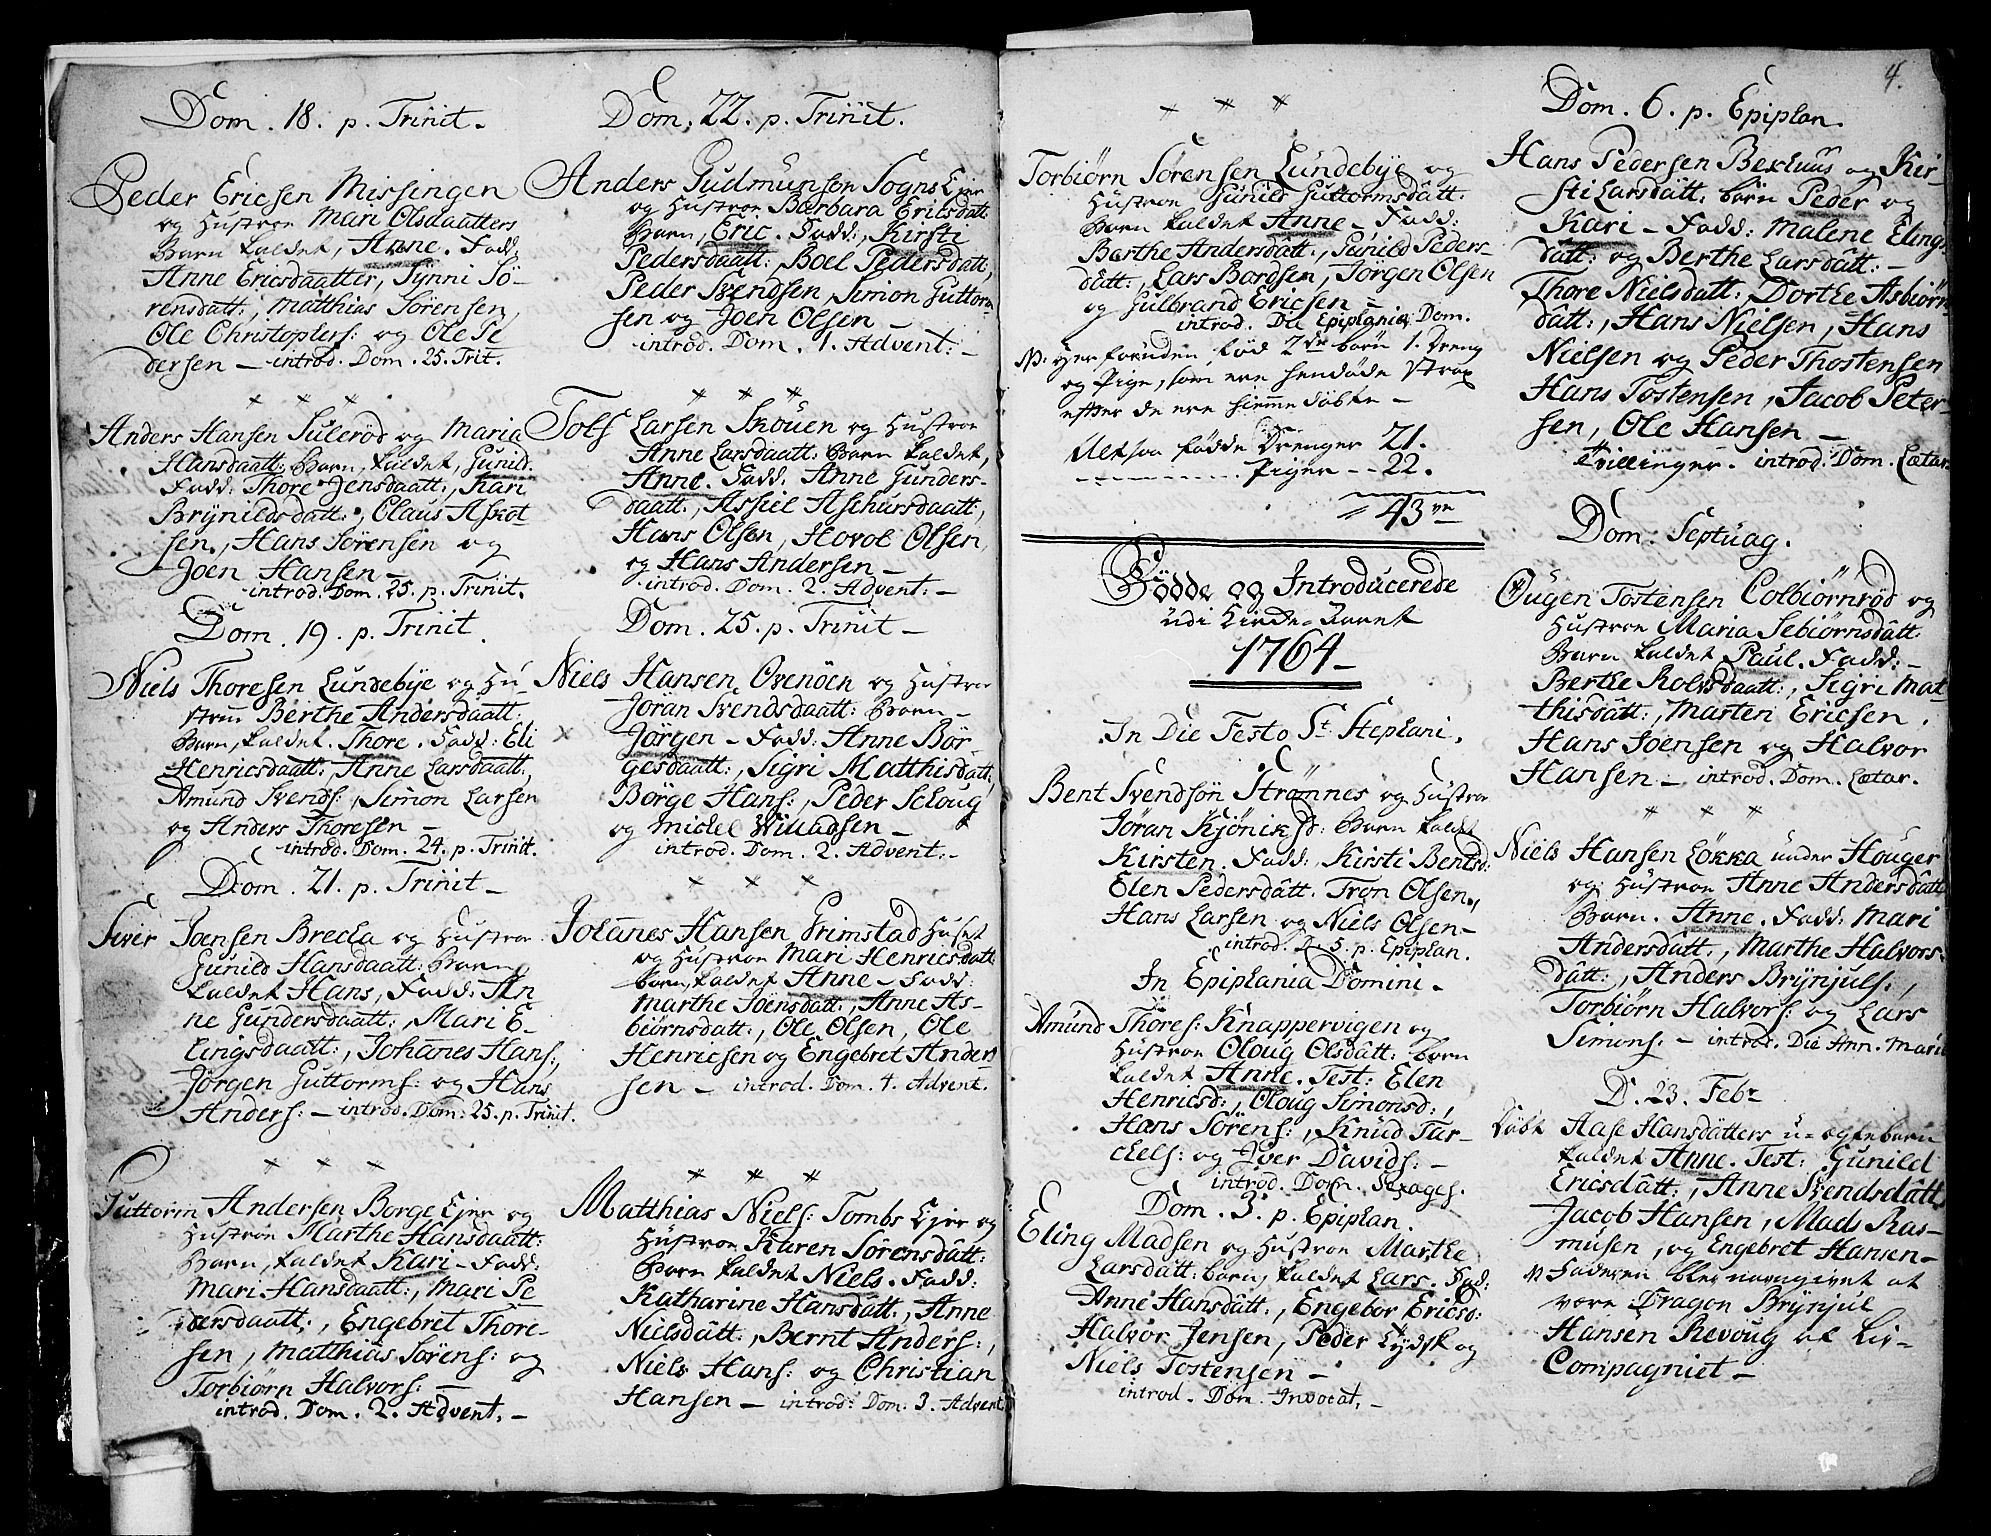 Dom. 18. p. Trinit.
Peder Ericsen Missingen
og Hustroe Mari Olsdaatters
Barn kaldet, Anne. Fadd.
Anne Ericsdaatter, Synni Sö-
rensdatt:, Matthias Sörensen,
Ole Christophers: og Ole Pe
dersen – introd. Dom. 25. Trit.
Anders Hansen Sulerød og Maria
Hansdaatt: Barn, kaldet, Gunild.
Fadd: Thore Jensdaatt:, Kari
Brynildsdatt:, Claus Askot
sen, Hans Sørensen og
Joen Hansen –
introd. Dom. 25. p. Trinit.
Dom. 19. p. Trinit.
Niels Thoresen Lundebye og Hu-
stru Berthe Andersdaatt:
Barn, kaldet. Thore. Fadd: Eli
Henricsdaatt:, Anne Larsdaatt:,
Amund Svends:, Simon Larsen
og Anders Thoresen –
introd. Dom. 24. p. Trinit.
Dom. 21. p. Trinit –
Siver Joensen Brecka og Hustroe
Gunild Hansdaatt: Barn
kaldet Hans, Fadd: An
ne Gundersdaatt:, Mari E-
lingsdaatt:, Johanes Hans:,
Jörgen Guttorms: og Hans
Anders: – introd. Dom: 25. p. Trinit.
Guttorm Andersen Borge Ejer og
Hustroe Marthe Hansdaatt:
Barn, kaldet Kari – Fadd:
Mari Hansdaatt:, Mari Pe
dersdaatt:, Engebret Thore-
sen, Matthias Sörens: og
Torbiørn Halvors: –
introd. Dom. 2. Advent. –
Dom. 22. p. Trinit.
Anders Gudmunsen Sogns Ejer
og Hustroe Barbara Ericsdatt:
Barn, Eric. Fadd:, Kirsti
Pedersdaatt:, Boel Pedersdatt,
Peder Svendsen, Simon Guttorm
sen og Joen Olsen –
introd. Dom. 1. Advent: –
Tols Larsen Skouen og Hustroe
Anne Larsdaatt: Barn kaldet,
Anne. Fadd: Anne Gunders-
daatt:, Assiel Aschursdaatt:,
Hans Olsen, Hovol Olsen,
og Hans Andersen –
introd. Dom. 2. Advent: –
Dom. 25. p. Trinit –
Niels Hansen Ovenöen og Hustroe
Jöran Svendsdaatt: Barn –
Jörgen – Fadd: Anne Bör-
gesdaatt:, Sigri Matthisdatt:
Börge Hans:, Peder Schoug
og Michel Willadsen –
introd. Dom. 2. Advent: –
Johanes Hansen Grimstad Huset
og Hustroe Mari Henricsdatt
barn, kaldet Anne – Fadd:
Marthe Joensdatt:, Anne As-
biörnsdatt:, Ole Olsen, Ole
Henricsen og Engebret Anders
sen – introd. Dom. 4. Advent.
Matthias Niels: Tombs Ejer og
Hustroe Karen Sörensdatt:
Barn kaldet Niels. Fadd:
Katharine Hansdatt:, Anne
Nielsdatt:, Bernt Anders:,
Niels Hans: og Christian
Hansen – introd: Dom. 3. Advent
4.
Torbiørn Sørensen Lundebye og
Hustroe Gunild Guttormsdatt:
Barn kaldet Anne – Fadd:
Barthe Andersdatt:, Gunild Peders-
datt:, Lars Bordsen, Jorgen Olsen
og Gulbrand Ericsen –
introd. Die Epiphanies Dom.
NB: Her foruden föd 2de börn 1. Dreng
og Pige, som ere hendöde Strax
efter de ere hiemme döbte –
Altsaa födde Drenger 21.
Piger – – 22.
43 ve
Födde og Introducerede
udi Kirke-Aaret
1764 –
In Die Festo St Stephani.
Bent Svendsön Strømnes og Hustroe
Jöran Kjöniksd: Barn kaldet
Kirsten. Fadd:, Kirsti Bentsd:
Elen Pedersdatt. Tron Olsen,
Hans Larsen og Niels Olsen –
introd. D. 5. p. Epiphan.
In Epiphania Domini –
Amund Thores: Knappervigen og
Hustroe Oloug Olsdatt: barn
kaldet Anne. Test: Elen
Henricsd:, Oloug Simonsd:,
Hans Sörens:, Knud Tar-
chels: og Iver Davids: –
introd. Dom. Sexages.
Dom. 3. p. Epiphan.
Eling Madsen og Hustroe Marthe
Larsdatt: barn, kaldet Lars. Fad:
Anne Hansdatt:, Engebor Ericsd:
Halvor Jensen, Peder Lydsk og
Niels Tostensen –
introd. Dom. Invocat. –
Dom. 6. p. Epiphan.
Hans Pedersen Bexhuus og Kir-
sti Larsdatt: börn Peder og
Kari – Fadd: Malene Elings
datt: og Berthe Larsdatt: –
Thore Nielsdatt:, Dorthe Asbiörn
datt:, Hans Nielsen, Hans
Nielsen og Peder Thostensen
Hans Tostensen, Jacob Peter-
sen, Ole Hansen –
Tvillinger. introd. Dom. Lætar.
Dom: Septuag.
Ougen Tostensen Colbiörnrød og
Hustroe Maria Sebiörnsdatt
Barn kaldet Paul. Fadd: –
Berthe Rolvsdaatt:, Sigri Mat
thisdatt:, Marten Ericsen.
Hans Joensen og Halvor
Hansen – introd. Dom. Lætar.
Niels Hansen Løkka under Houger
og Hustroe Anne Andersdatt
Barn. Anne. Fadd: Mari
Andersdatt:, Marthe Halvors-
datt:, Anders Brynjuls:,
Torbiørn Halvors: og Lars
Simons: – introd. Die Ann. Mariæ
D. 23. Febr
Döbt Aase Hansdatters u-ægte barn
kaldet Anne. Test: Gunild
Ericsdatt:, Anne Svendsdatt,
Jacob Hansen, Mads Ras-
musen, og Engebret Hansen –
NB Faderen blev navngivet at
være Dragon Brynjul
Hansen Revoug af Liv-
Compagniet –